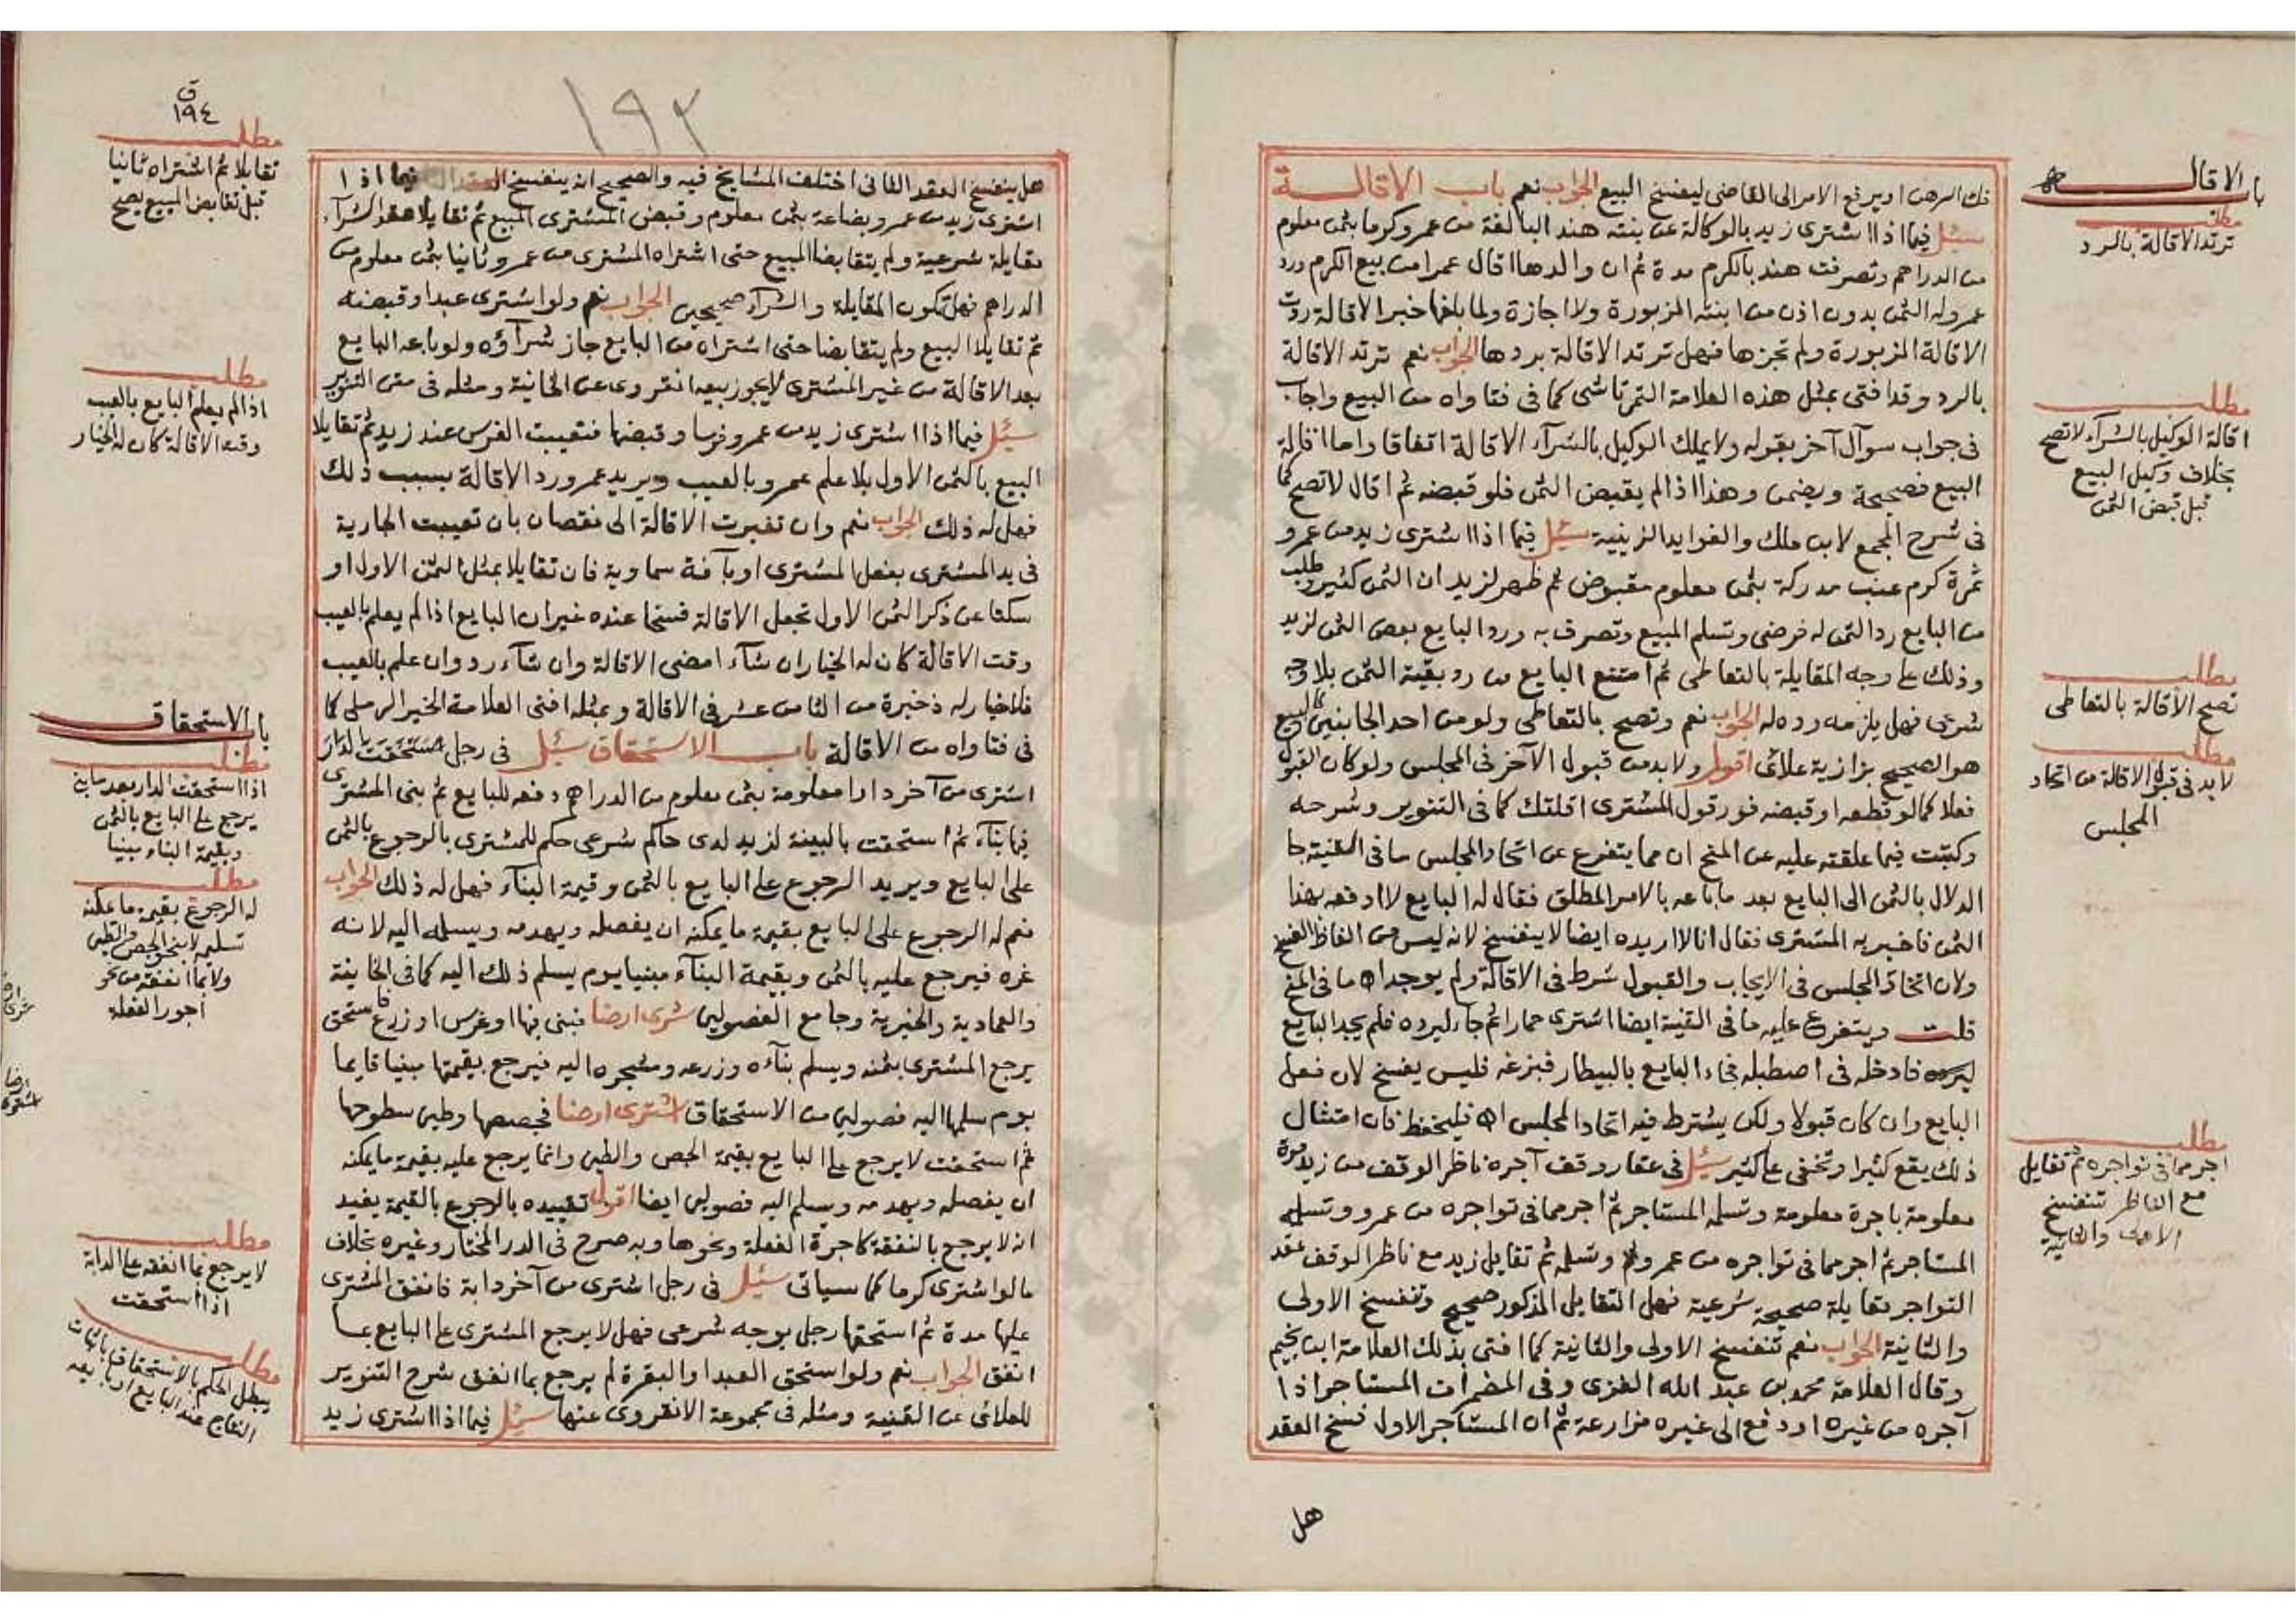 فك الرهن او يرفع الامر الى القاضى ليفسخ البيع الجواب نعم باب الاقالة
سئل فيما اذا اشترى زيد بالوكالة عن بنته هند البالغة من عمرو كرما بثمن معلوم
من الدراهم وتصرفت هند بالكرم مدة ثم ان والدها اقال عمرا من بيع الكرم ورد
عمرو له الثمن بدون اذن من ابنته المزبورة ولا اجازة ولما بلغها خبر الاقالة ردت
الاقالة المزبورة ولم تجزها فهل ترتد الاقالة بردها الجواب نعم ترتد الاقالة
بالرد وقد افتى بمثل هذه العلامة التمرتاشى كما فى فتاواه من البيع واجاب
فى جواب سوآل آخر بقوله ولا يملك الوكيل بالشرآء الاقالة اتفاقا واما اقالة
البيع فصحيحة ويضمن وهذا اذا لم يقبض الثمن فلو قبضه ثم اقال لا تصح كما
فى شرح المجمع لابن ملك والفوايد الزينية سئل فيما اذا اشترى زيد من عمرو
ثمرة كرم عنب مدركة بثمن معلوم مقبوض ثم ظهر لزيد ان الثمن كثير وطلب
من البايع رد الثمن له فرضى وتسلم المبيع وتصرف به ورد البايع بعض الثمن لزيد
وذلك على وجه المقايلة بالتعاطى ثم امتنع البايع من رد بقية الثمن بلا وجه
شرعى فهل يلزمه رده له الجواب نعم وتصح بالتعاطى ولو من احد الجانبين كالبيع
هو الصحيح بزازية علائى اقول ولا بد من قبول الآخر فى المجلس ولو كان القبول
فعلا كما لو قطعه او قبضه فور قول المشترى اقلتك كما فى التنوير وشرحه
وكتبت فيما علقته عليه عن المنح ان مما يتفرع عن اتحاد المجلس ما فى القنية جا
الدلال بالثمن الى البايع بعد ما باعه بالامر المطلق فقال له البايع لا ادفعه بهذا
الثمن فاخبر به المشترى فقال انا لا اريده ايضا لا ينفسخ لانه ليس من الفاظ الفسخ
ولان اتحاد المجلس فى الايجاب والقبول شرط فى الاقالة ولم يوجد اه ما فى المنح
قلت ويتفرع عليه ما فى القنية ايضا اشترى حمارا ثم جاء ليرده فلم يجد البايع
ليرده فادخله فى اصطبله فجاء البايع بالبيطار فبزغه فليس يفسخ لان فعل
البايع وان كان قبولا ولكن يشترط فيه اتحاد المجلس اه فليحفظ فان امتثال
ذلك يقع كثيرا وتخفى على كثير سئل فى عقار وقف آجره ناظر الوقف من زيد مدة
معلومة باجرة معلومة وتسلمه المستاجر ثم اجر مما فى تواجره من عمرو وتسلمه
المستاجر ثم اجر مما فى تواجره من عمرو وتسلمه ثم تقايل زيد مع ناظر الوقف عقد
التواجر تقايلة صحيحة شرعية فهل التقايل المذكور صحيح وتنفسخ الاولى
والثانية الجواب نعم تنفسخ الاولى والثانية كما افتى بذلك العلامة ابن نجيم
وقال العلامة محمد بن عبد الله الغزى وفى المضمرات المستاجر اذا
آجره من غيره او دفع الى غيره مزارعة ثم ان المستاجر الاول فسخ العقد
هل
باب الاقالة
مطلب
ترتد الاقالة بالرد
مطلب
اقالة الوكيل بالشرآء لا تصح
بخلاف وكيل البيع
قبل قبض الثمن
مطلب
تصح الاقالة بالتعاطى
مطلب
لا بد فى قبول الاقالة من اتحاد
المجلس
مطلب
اجر مما فى تواجره ثم تقايل
مع الناظر تنفسخ
الاولى والثانية
١٩٢
هل ينفسخ العقد الثانى اختلف المشايخ فيه والصحيح انه ينفسخ العقد فيما اذا
اشترى زيد من عمرو بضاعة بثمن معلوم وقبض المشترى المبيع ثم تقايلا عقد الشرآء
مقايلة شرعية ولم يتقابضا المبيع حتى اشتراه المشترى من عمرو ثانيا بثمن معلوم من
الدراهم فهل تكون المقايلة والشرآء صحيحين الجواب نعم ولو اشترى عبدا وقبضه
ثم تقايلا البيع ولم يتقابضا حتى اشتراه من البايع جاز شرآؤه ولو باعه البايع
بعد الاقالة من غير المشترى لا يجوز بيعه انقروى عن الخانية ومثله فى متن التنوير
سئل فيما اذا اشترى زيد من عمرو فرسا وقبضها فتعيبت الفرس عند زيد ثم تقايلا
البيع بالثمن الاول بلا علم عمرو بالعيب ويريد عمرو رد الاقالة بسبب ذلك
فهل له ذلك الجواب نعم وان تغيرت الاقالة الى نقصان بان تعيبت الجارية
فى يد المشترى بفعل المشترى او بآفة سماوية فان تقايلا بمثل الثمن الاول او
سكتا عن ذكر الثمن الاول تجعل الاقالة فسخا عنده غير ان البايع اذا لم يعلم بالعيب
وقت الاقالة كان له الخيار ان شآء امضى الاقالة وان شآء رد وان علم بالعيب
فلا خيار له ذخيرة من الثامن عشر فى الاقالة وبمثله افتى العلامة الخير الرملى كما
فى فتاواه من الاقالة باب الاستحقاق سئل فى رجل
اشترى من آخر دارا معلومة بثمن معلوم من الدراهم دفعه للبايع ثم بنى المشترى
فيها بنآء ثم استحقت بالبينة لزيد لدى حاكم شرعى حكم للمشترى بالرجوع بالثمن
على البايع ويريد الرجوع على البايع بالثمن وقيمة البنآء فهل له ذلك الجواب
نعم له الرجوع على البايع بقيمة ما يمكنه ان يفصله ويهدمه ويسلمه اليه لانه
غره فيرجع عليه بالثمن وبقيمة البنآء مبنيا يوم يسلم ذلك اليه كما فى الخانية
والعمادية والخيرية وجامع الفصولين شرى ارضا فبنى فيها او غرس او زرع فاستحق
يرجع المشترى بثمنه ويسلم بنآءه وزرعه وشجره اليه فيرجع بقيمتها مبنيا قايما
يوم سلمها اليه فصولين من الاستحقاق اشترى ارضا فجصصها وطين سطوحها
ثم استحقت لا يرجع على البايع بقيمة الجص والطين وانما يرجع عليه بقيمة ما يمكنه
ان يفصله ويهدمه ويسلم اليه فصولين ايضا اقول تقييده بالرجوع بالقيمة يفيد
انه لا يرجع بالنفقة كاجرة الفعلة ونحوها وبه صرح فى الدر المختار وغيره بخلاف
ما لو اشترى كرما كما سياتى سئل فى رجل اشترى من آخر دابة فانفق المشترى
عليها مدة ثم استحقها رجل بوجه شرعى فهل لا يرجع المشترى على البايع بما
انفق الجواب نعم ولو استحق العبد او البقرة لم يرجع بما انفق شرح التنوير
للعلائى عن القنية ومثله فى مجموعة الانقروى عنها سئل فيما اذا اشترى زيد
ق
١٩٤
مطلب
تقايلا ثم اشتراه ثانيا
قبل تقابض المبيع يصح
مطلب
اذا لم يعلم البايع بالعيب
وقت الاقالة كان له الخيار
باب الاستحقاق
مطلب
اذا استحقت الدار بعد ما بنى
يرجع على البايع بالثمن
وبقيمة البناء مبنيا
مطلب
له الرجوع بقيمة ما يمكنه
تسليمه لا بنحو الجص والطين
ولا بما انفقه من نحو
اجور الفعلة
مطلب
لا يرجع بما انفقه على الدابة
اذا استحقت
مطلب
يبطل الحكم بالاستحقاق باثبات
النتاج عند البايع او بايعه